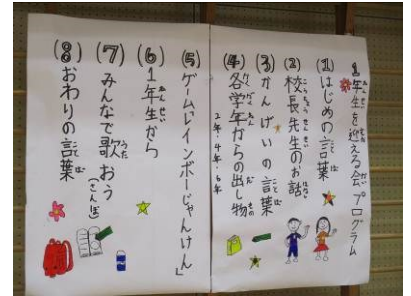 1年生を迎える会プログラム
(1)はじめの言葉
(2)校長先生のお話
(3)かんげいの言葉
(4)各学年からの出し物
2年・4年・6年
(5)ゲーム「レインボーじゃんけん」
(6)1年生から
(7)みんなで歌おう
(さんぽ)
(8)おわりの言葉